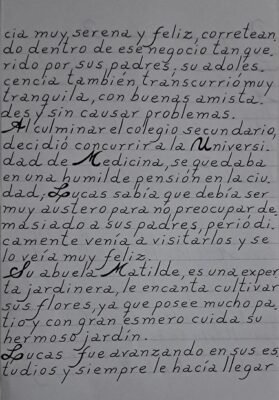 cia muy serena y feliz, corretean_
do dentro de ese negocio tan que_
rido por sus padres. su adoles_
cencia también transcurrió muy
tranquila, con buenas amista_
des y sin causar problemas.
Al culminar el colegio secundario,
decidió concurrir a la Universi_
dad de Medicina, se quedaba
en una humilde pensión en la ciu_
dad, Lucas sabía que debía ser
muy austero para no preocupar de_
masiado a sus padres, periódi_
camente venía a visitarlos y se
lo veía muy feliz.
Su abuela Matilde, es una exper_
ta jardinera, le encanta cultivar
sus flores, ya que posee mucho pa_
tio y con gran esmero cuida su
hermoso jardín.
Lucas fue avanzando en sus es_
tudios y siempre le hacía llegar